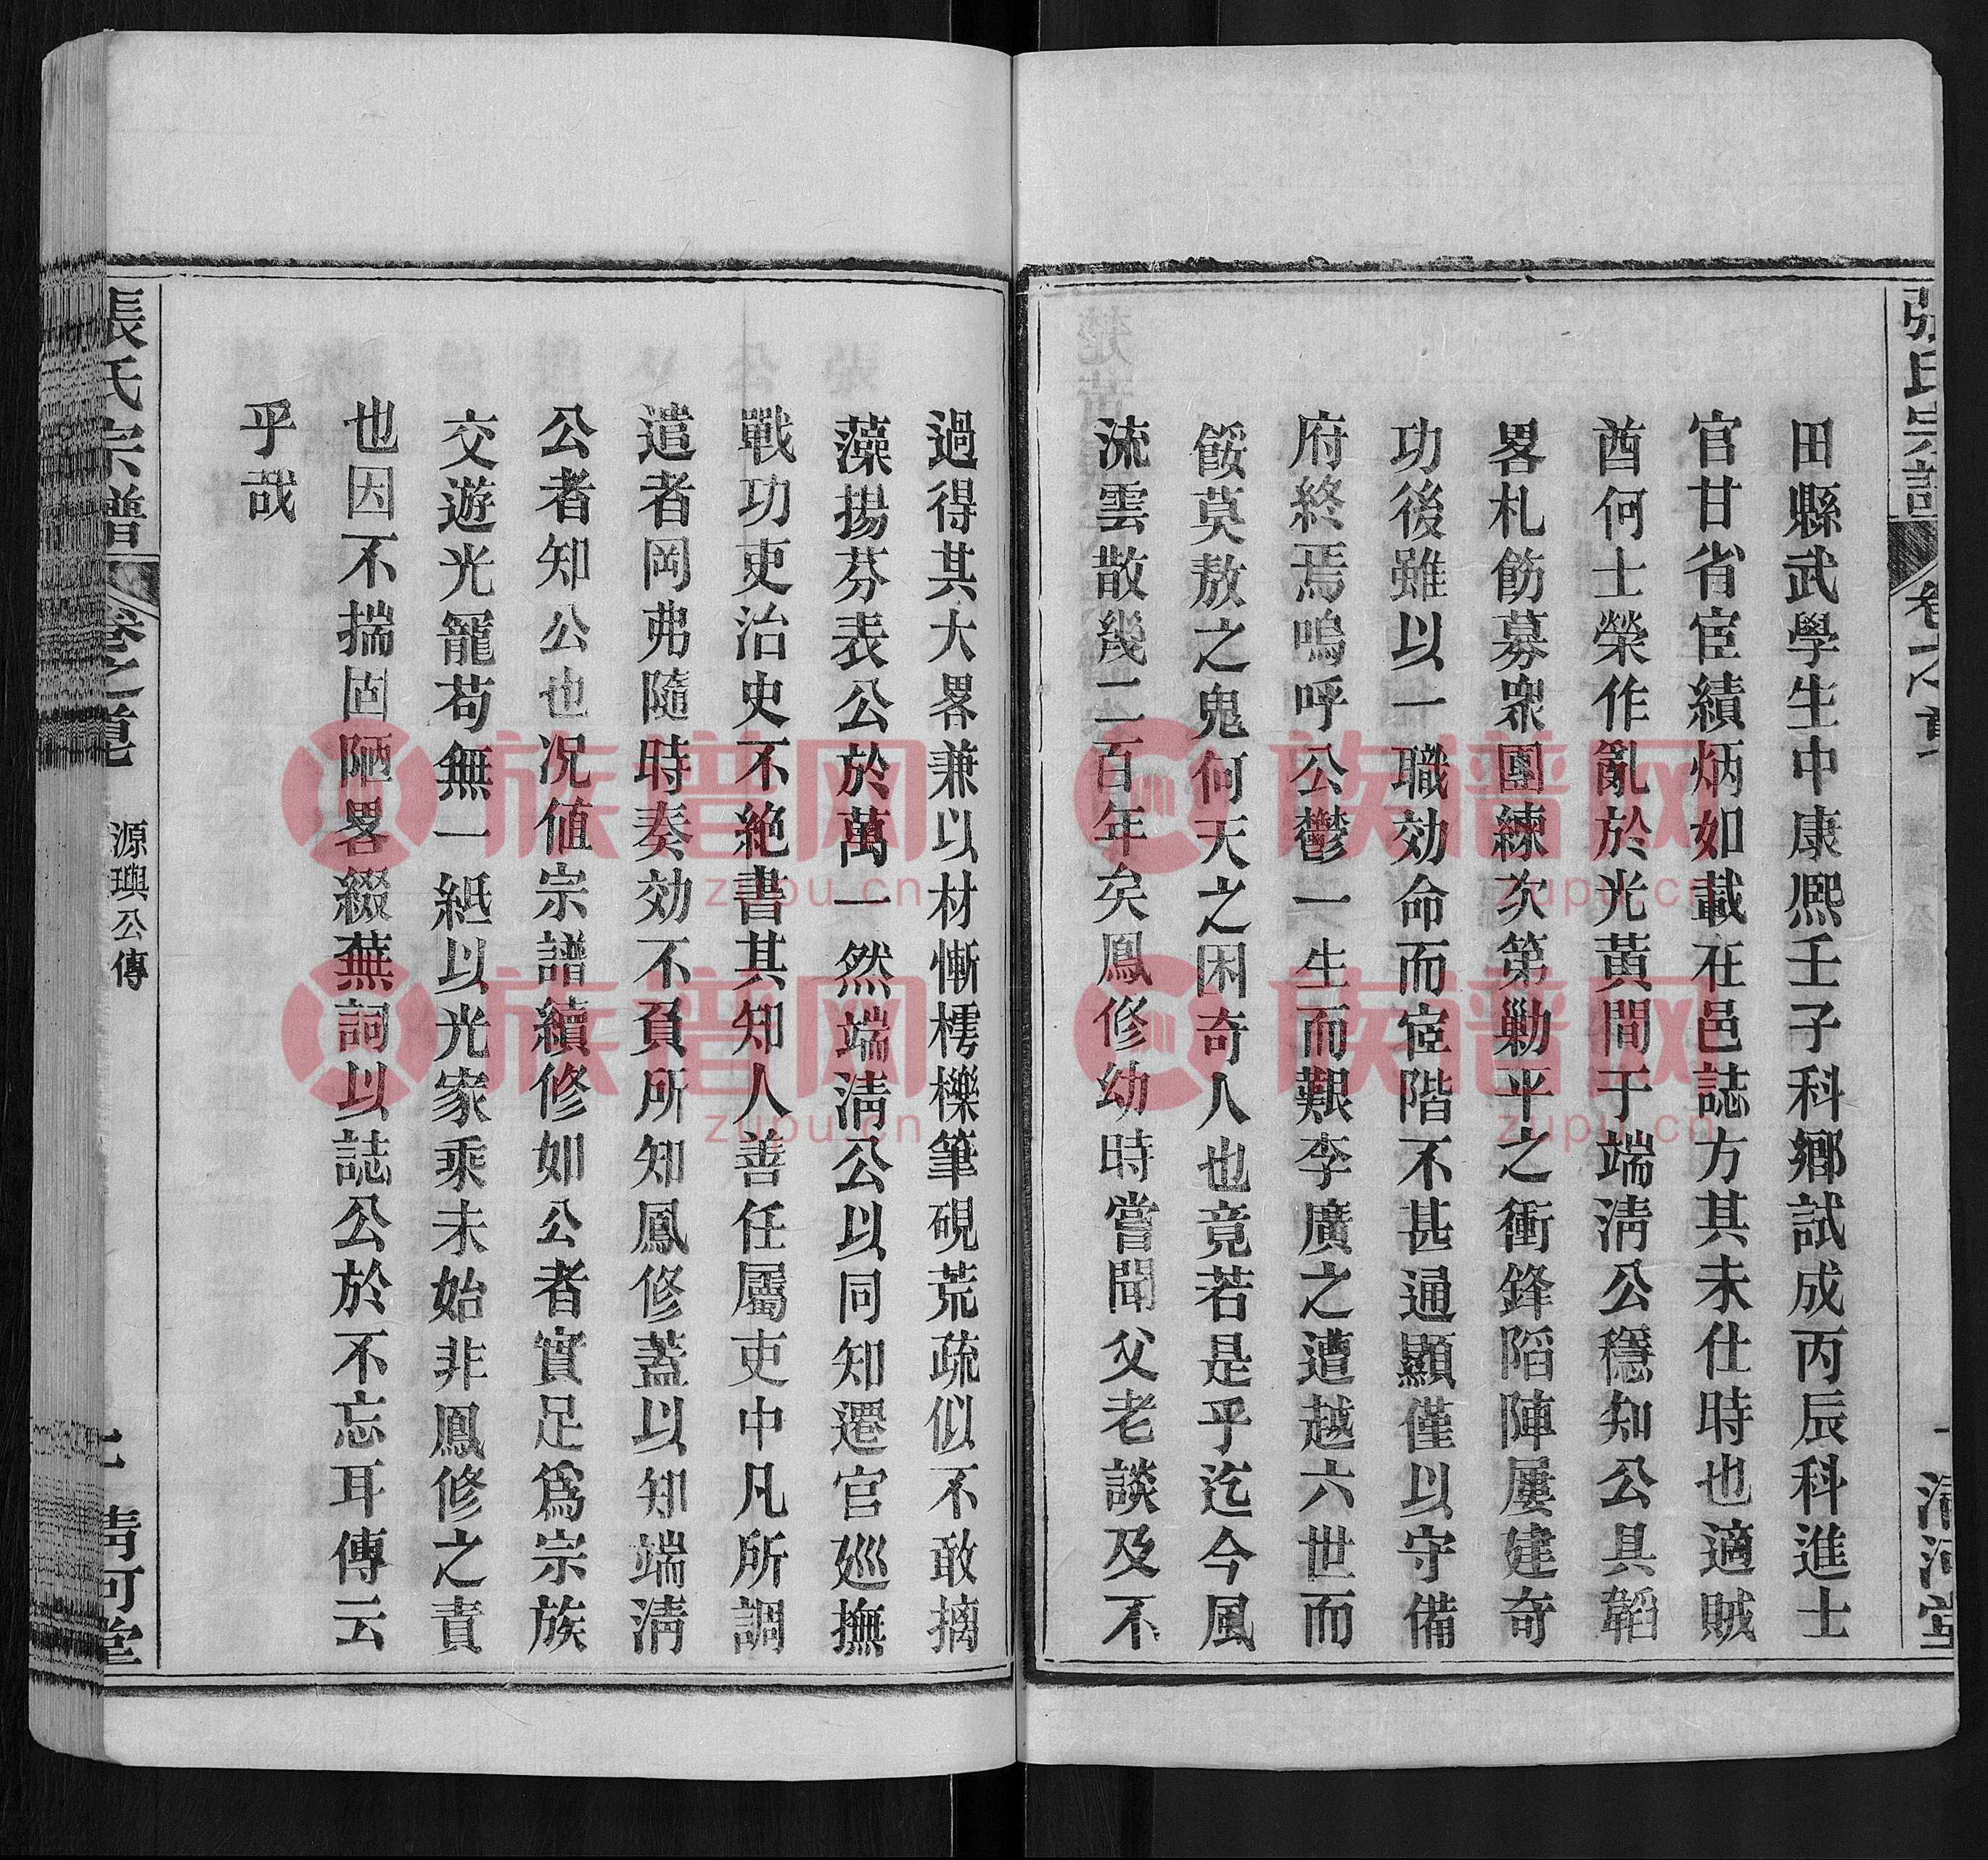 張氏宗譜
卷之首
清河堂
田縣武學生中康熙壬子科鄉試成丙辰科進士
官甘省宦績炳如載在邑誌方其未仕時也適賊
酋何士榮作亂於光黃間于端淸公穩知公具韜
畧札飭募衆團練次第勦平之衝鋒陷陣屢建奇
功後雖以一職効命而宦階不甚通顯僅以守備
府終焉嗚呼公鬱一生而艱李廣之遭越六世而
餒莫敖之鬼何天之困奇人也竟若是乎迄今風
流雲散幾二百年矣鳳修幼時嘗聞父老談及不
過得其大畧兼以材慚樗櫟筆硯荒疏似不敢摛
藻揚芬表公於萬一然端淸公以同知遷官廵撫
戰功吏治史不絕書其知人善任屬吏中凡所調
遣者罔弗隨時奏効不負所知鳳修蓋以知端淸
公者知公也况値宗譜續修如公者實足爲宗族
交遊光寵苟無一紙以光家乘未始非鳳修之責
也因不揣固陋畧綴蕪詞以誌公於不忘耳傳云
乎哉
張氏宗譜
卷之首
源璵公傳
清河堂
族谱网
zupu.cn
族谱网
zupu.cn
族谱网
zupu.cn
族谱网
zupu.cn